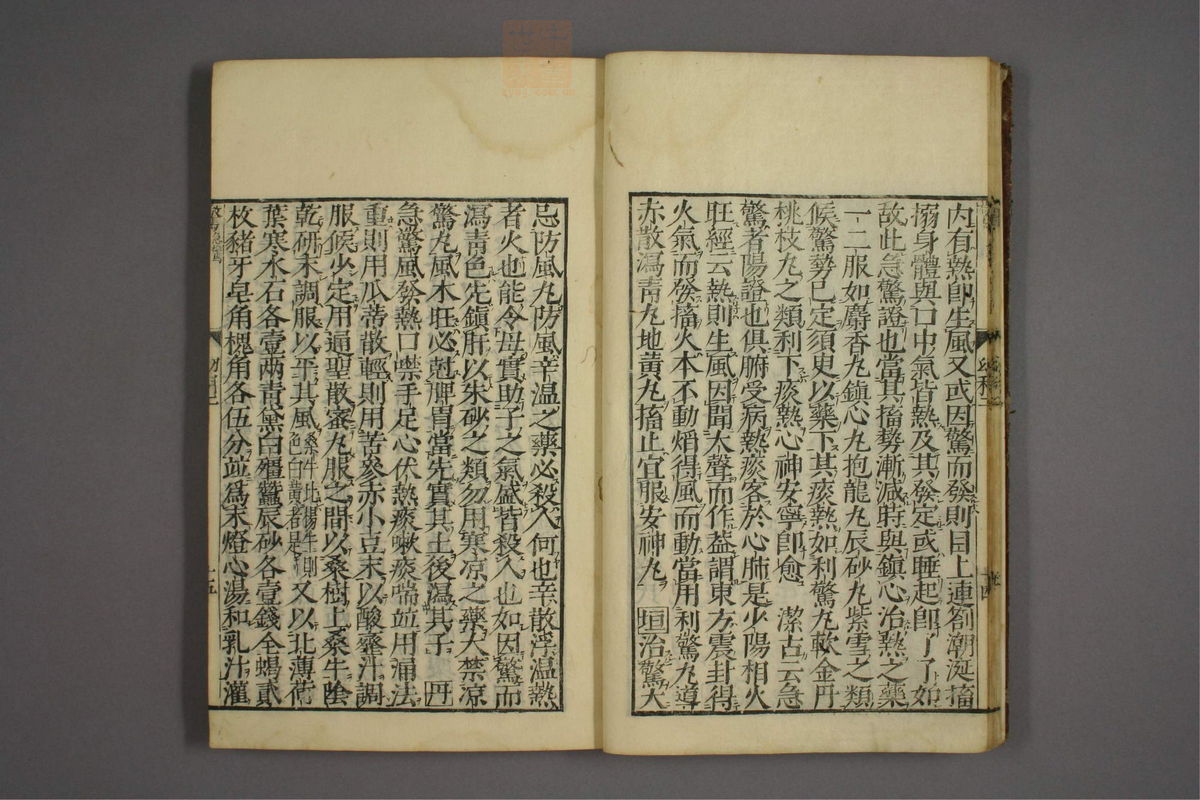 内有熱即生風又或因驚而發則目上連劄潮涎搐
搦身體與口中氣皆熱及其發定或睡起即了了如
故此急驚證也當其搐勢漸減時與鎮心治熱之藥
一二服如麝香丸鎮心丸抱龍丸辰砂丸紫雪之類
候驚勢已定須臾以藥下其痰熱如利驚丸軟金丹
桃枝丸之類利下痰熱心神安寧即愈 潔古云急
驚者陽證也俱腑受病熱痰客於心肺是少陽相火
旺經云熱則生風因聞大聲而作蓋謂東方震卦得
火氣而發搐火本不動焰得風而動當用利驚丸導
赤散瀉青丸地黃丸搐止宜服安神丸 垣治驚大
忌防風丸防風辛温之藥必殺人何也辛散浮温熱
者火也能令母實助子之氣盛皆殺人也如因驚而
瀉青色先鎮肝以朱砂之類勿用寒凉之藥大禁凉
驚丸風木旺必尅脾胃當先實其土後瀉其子 丹
急驚風發熱口噤手足心伏熱痰嗽痰喘並用涌法
重則用瓜蒂散輕則用苦參赤小豆末以酸虀汁調
服候少定用通聖散蜜丸服之間以桑樹上桑牛陰
乾研末調服以平其風桑牛比楊牛則色白黃者是又以北薄荷
葉寒水石各壹兩青黛白殭蠶辰砂各壹錢全蝎貳
枚豬牙皂角槐角各伍分並為末燈心湯和乳汁灌